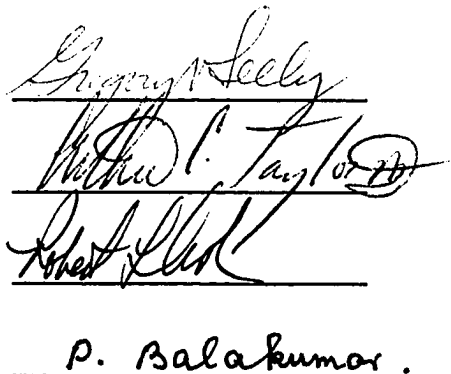 Gregory N Seely
Arthur C. Taylor
Robert
P. Balakumar.